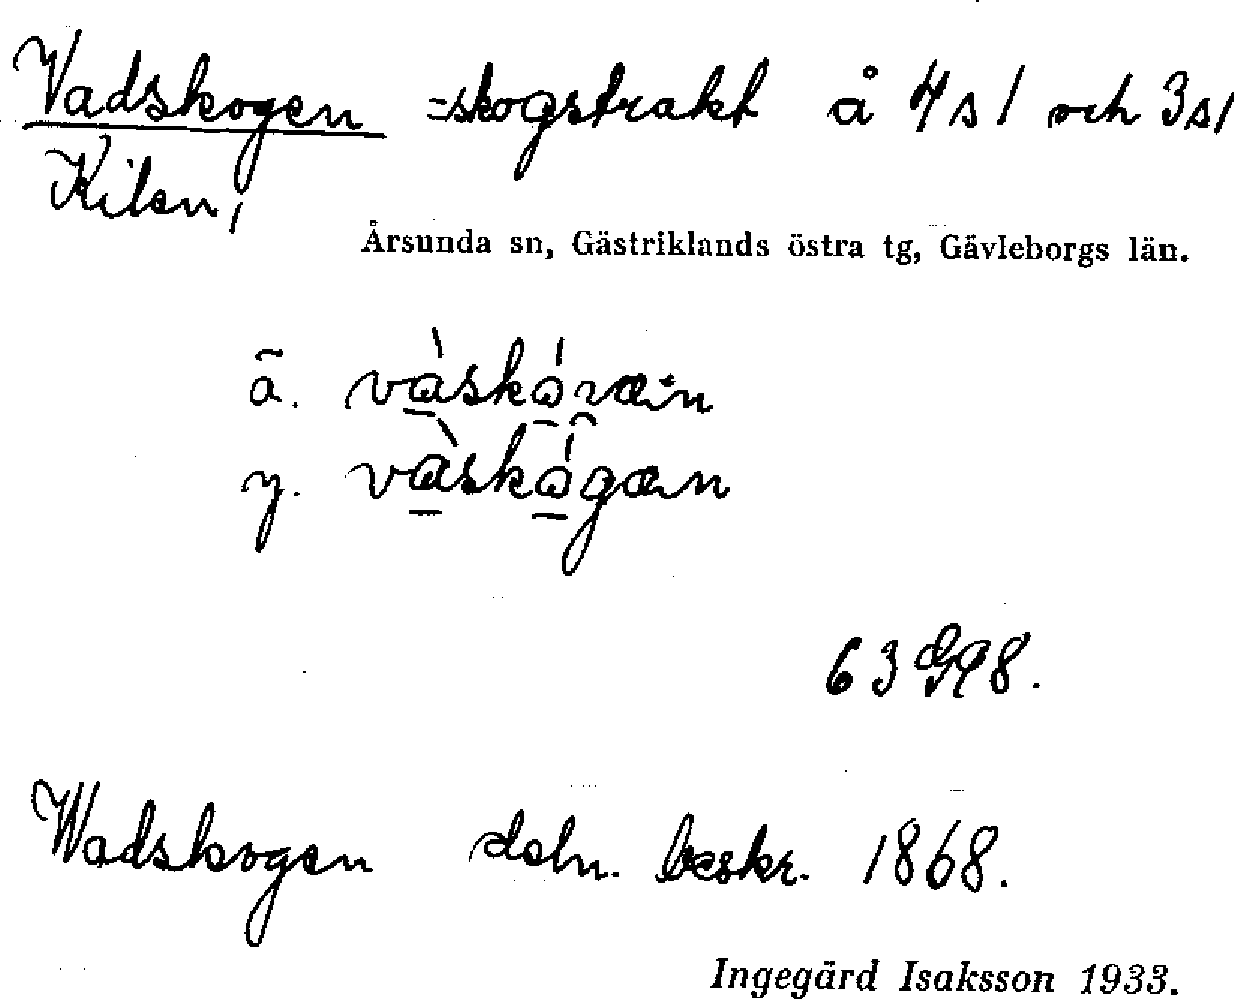 Vadskogen =skogstrakt å 4s1 och 3s1
Kilen,
Årsunda sn, Gästriklands östra tg, Gävleborgs län.
ã. vàskóvæn
y. vàskógæn
63 G98.
Wadskogen deln. beskr. 1868.
Ingegärd Isaksson 1933.